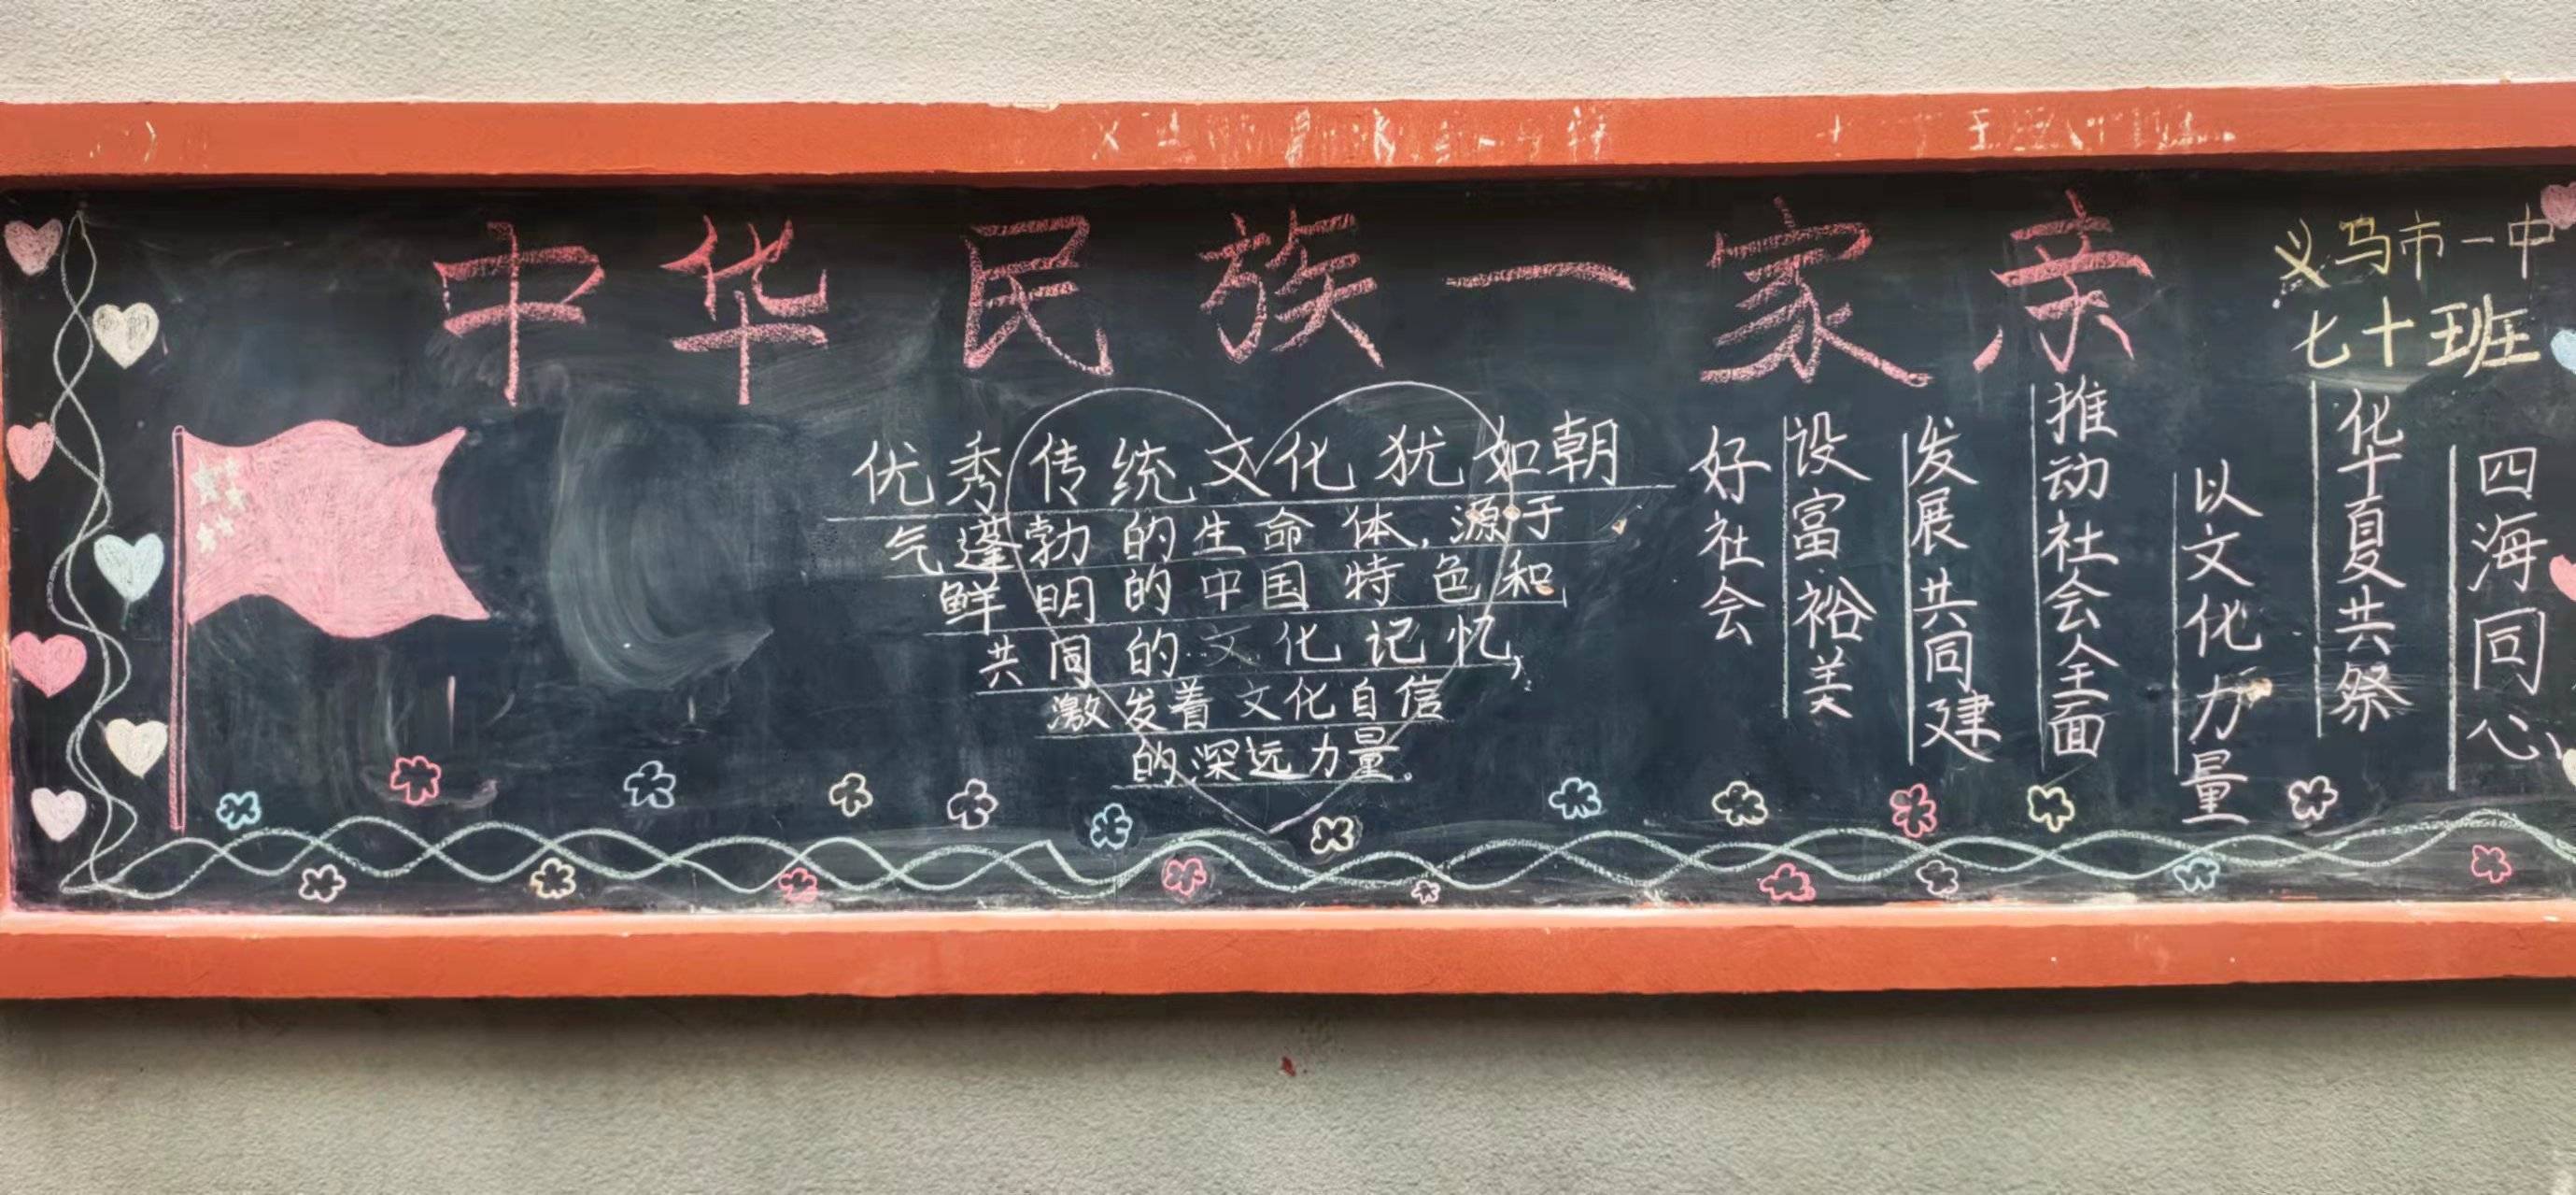 中华民族一家亲
义马市一中
七十班
优秀传统文化犹如朝
气蓬勃的生命体,源于
鲜明的中国特色和
共同的文化记忆,
激发着文化自信
的深远力量。
四海同心
华夏共祭
以文化力量
推动社会全面
发展共同建
设富裕美
好社会